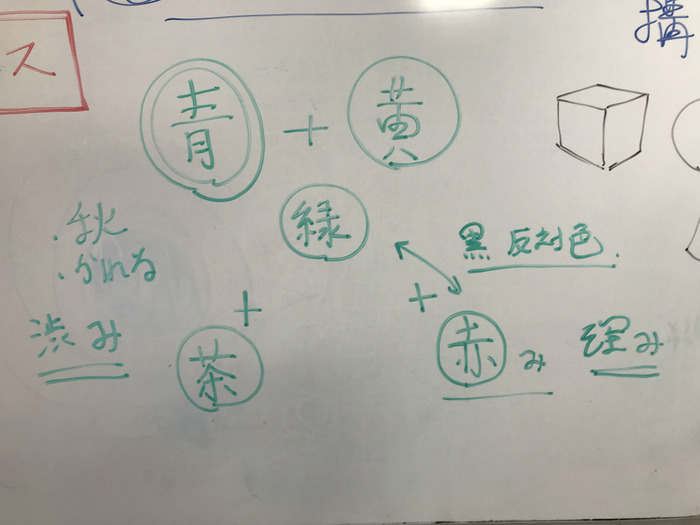 構
ス
青 + 黄
緑
黒 反対色.
・秋
・かれる
渋み
+
茶
+
赤み
深み